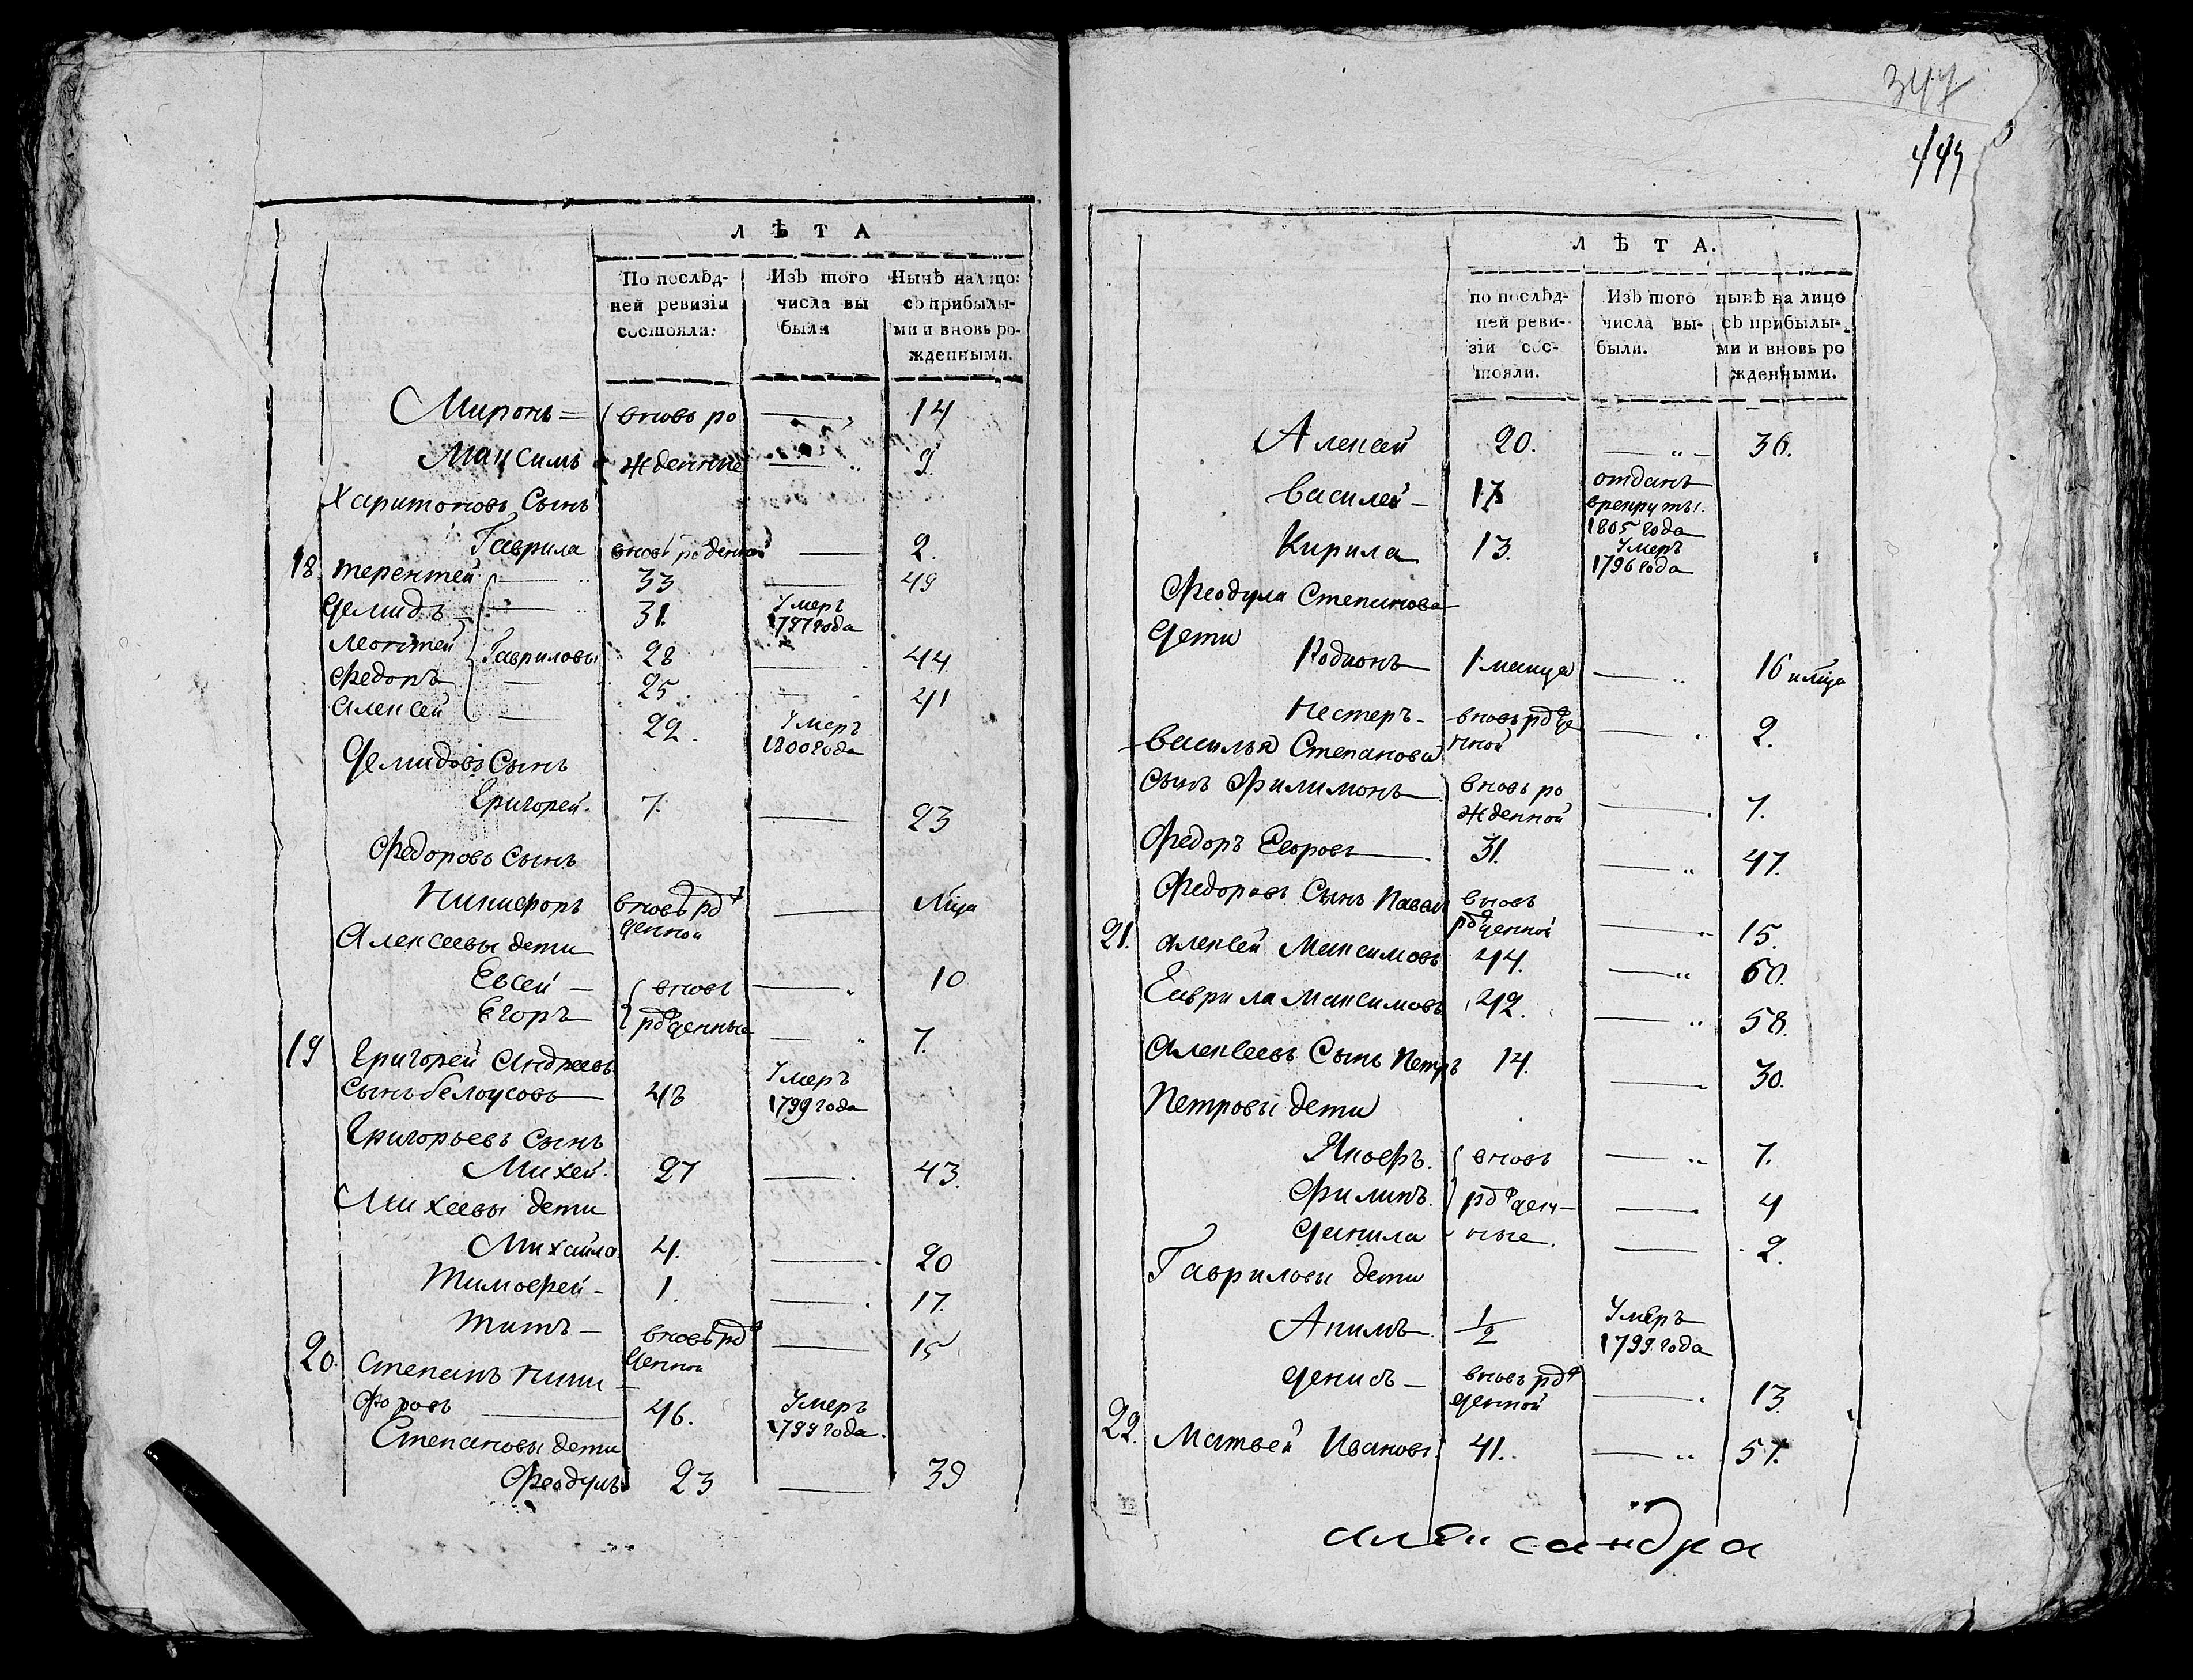 Л Ѣ Т А
По послѣд-
ней ревизіи
состояли:
Изъ того
числа вы
были
Нынѣ налицо:
съ прибылы-
ми и вновь ро-
жденными.
Миронъ = вновь ро — 14
Максимъ жденные — 9.
Харитоновъ Сынъ
Гаврила вновь роденной — 2.
18 терентей — 33 — 49
Демидъ — 31. Умеръ 1797 года
Леонтей Гавриловы 28 — 44
Федоръ — 25 — 41
Алексей — 22. Умеръ 1800 года
Демидовъ Сынъ
Григорей. 7. — 23
Федоровъ сынъ
Никифоръ вновь рож
денной —
Алексеевы дети
Евсей — вновь — 10
Егоръ рожденныя — 7.
19 Григорей Андреевъ
Сынъ белоусовъ — 48 Умеръ 1799 года
Григорьевъ сынъ
Михей. 27 — 43.
Михеевы дети
Михайла 4. — 20
Тимофей - 1. — 17.
титъ — вновь рож
денной — 15
20. Степанъ Ники
форовъ — 46. Умеръ 1799 года.
Степановы дети
Феодулъ 23 — 39
347
Л Ѣ Т А.
по послѣд-
ней реви-
зіи сос-
тояли.
Изъ того
числа вы-
были.
нынѣ на лицо
съ прибылы-
ми и вновь ро
жденными.
Алексей 20. — 36.
Василей — 17 отданъ
врекруты.
1805 года
Кирила 13. Умеръ
1796 года
Феодула Степанова
Дети
Родионъ 1 месица — 16
Нестеръ — вновь рожде
нной — 2.
Василья Степанова
сынъ Филимонъ вновь ро
жденной — 7.
Федоръ Егоровъ — 31. — 47.
Федоровъ Сынъ Павелъ вновь
рожденной — 15.
21. Алексей Максимовъ 44. — 60.
Гаврила Максимовъ 42. — 58.
Алексеевъ Сынъ Петръ 14. — 30.
Петровы дети
Якофъ. вновь — 7.
Филипъ. рожден- — 4
Данила ные. — 2.
Гавриловы дети
Акимъ 1/2 Умеръ
1799. года
Денисъ — вновь рож
денной — 13.
22. Матвей Ивановъ. 41. — 57.
александра